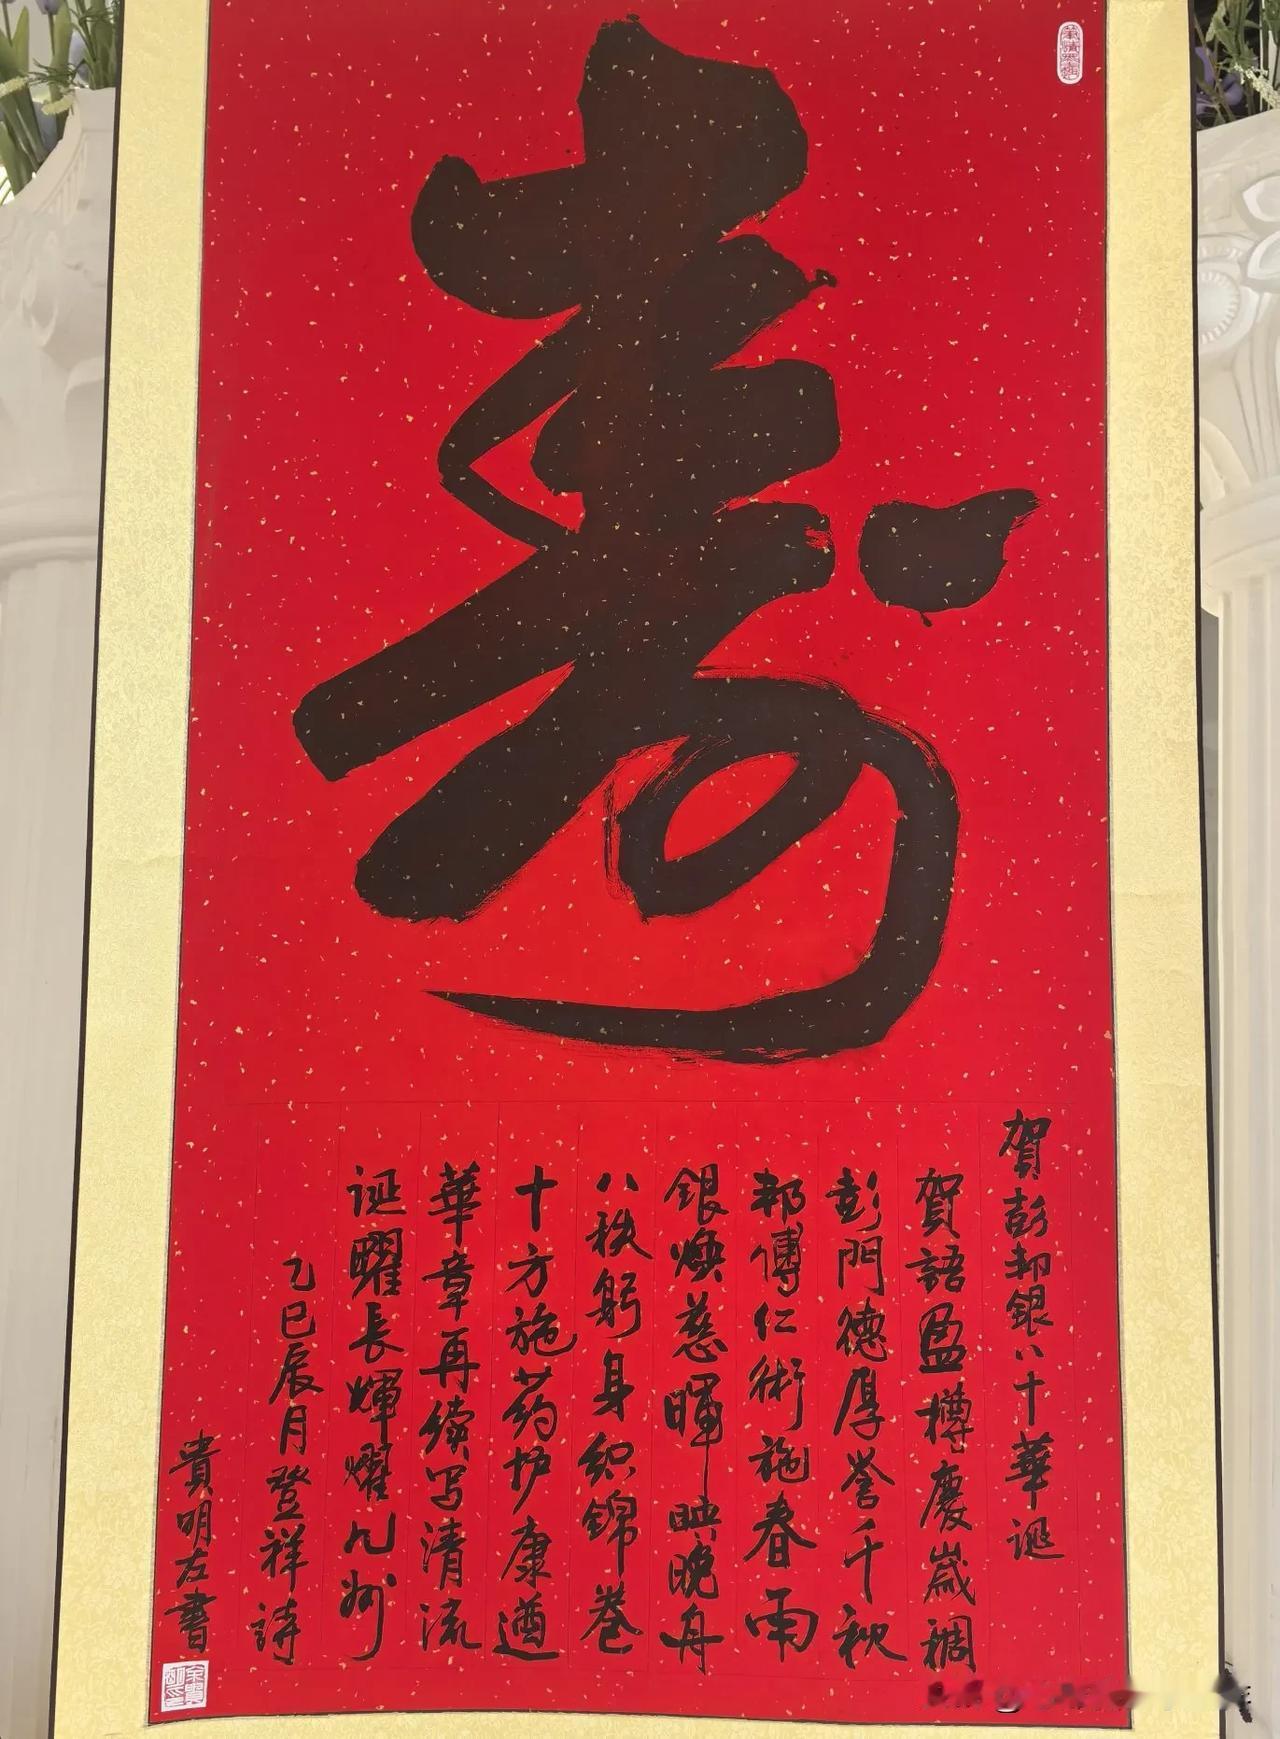 寿
賀彭邦銀八十華诞
賀語盈樽慶歲稠
彭門德厚誉千秋
邦傳仁術施春雨
銀焕慈暉映晚舟
八秩躬身织錦卷
十方施药护康遒
華章再續写清流
诞曜長輝耀九州
乙巳辰月登祥詩
貴明左書